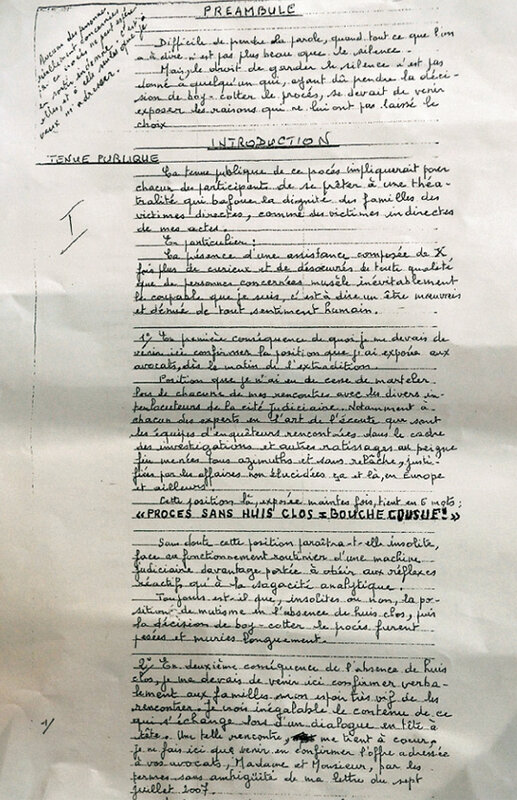 Aucune des personnes
réellement concernées
PREAMBULE
Difficile de prendre la parole, quand tout ce que l'on
a à dire n'est pas plus beau que le silence.
Mais, le droit de garder le silence n'est pas
donné à quelqu'un qui, ayant dû prendre la déci-
sion de boy-cotter le procès, se devait de venir
exposer les raisons qui ne lui ont pas laissé le
choix
INTRODUCTION
TENUE PUBLIQUE
La tenue publique de ce procès impliquerait pour
chacun des participants de se prêter à une théa-
tralité qui bafoue la dignité des familles des
victimes directes, comme des victimes indirectes
de mes actes.
I
En particulier :
La présence d'une assistance composée de X
fois plus de curieux et de désoeuvrés de toute qualité
que de personnes concernées musèle inévitablement
le coupable que je suis, c'est à dire un être mauvais
et dénué de tout sentiment humain.
1°/ En première conséquence de quoi je me devais de
venir ici confirmer la position que j'ai exposée aux
avocats, dès le matin de l'extradition.
Position que je n'ai eu de cesse de marteler
lors de chacune de mes rencontres avec les divers in-
terlocuteurs de la cité Judiciaire. Notamment à
chacun des experts en l'art de l'écoute que sont
les équipes d'enquêteurs rencontrées dans le cadre
des investigations et autres ratissages au peigne
fin menées tous azimuths et sans relâche, justi-
fiées par les affaires non élucidées ça et là, en Europe
et ailleurs.
Cette position là, exposée maintes fois, tient en 6 mots :
«PROCES SANS HUIS CLOS = BOUCHE COUSUE!»
Sans doute cette position paraîtra-t-elle insolite,
face au fonctionnement routinier d'une machine
judiciaire davantage portée à obéir aux réflexes
réactifs qu'à la sagacité analytique.
Toujours est-il que, insolites ou non, la po-
sition de mutisme en l'absence de huis clos, puis
la décision de boy-cotter le procès furent
pesées et muries longuement.
2°/ En deuxième conséquence de l'absence de huis
clos, je me devais de venir ici confirmer verba-
lement aux familles mon espoir très vif de les
rencontrer. Je crois inégalable le contenu de ce
qui s'échange lors d'un dialogue en tête à
tête. Une telle rencontre, me tient à coeur,
je ne fais ici que venir en confirmer l'offre adressée
à vos avocats, Madame et Monsieur, par les
termes sans ambigüité de ma lettre du sept
juillet 2007.
1/